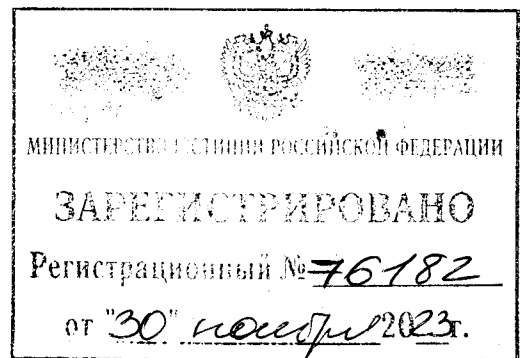 МИНИСТЕРСТВО ЮСТИЦИИ РОССИЙСКОЙ ФЕДЕРАЦИИ
ЗАРЕГИСТРИРОВАНО
Регистрационный № 76182
от "30" ноября 2023г.